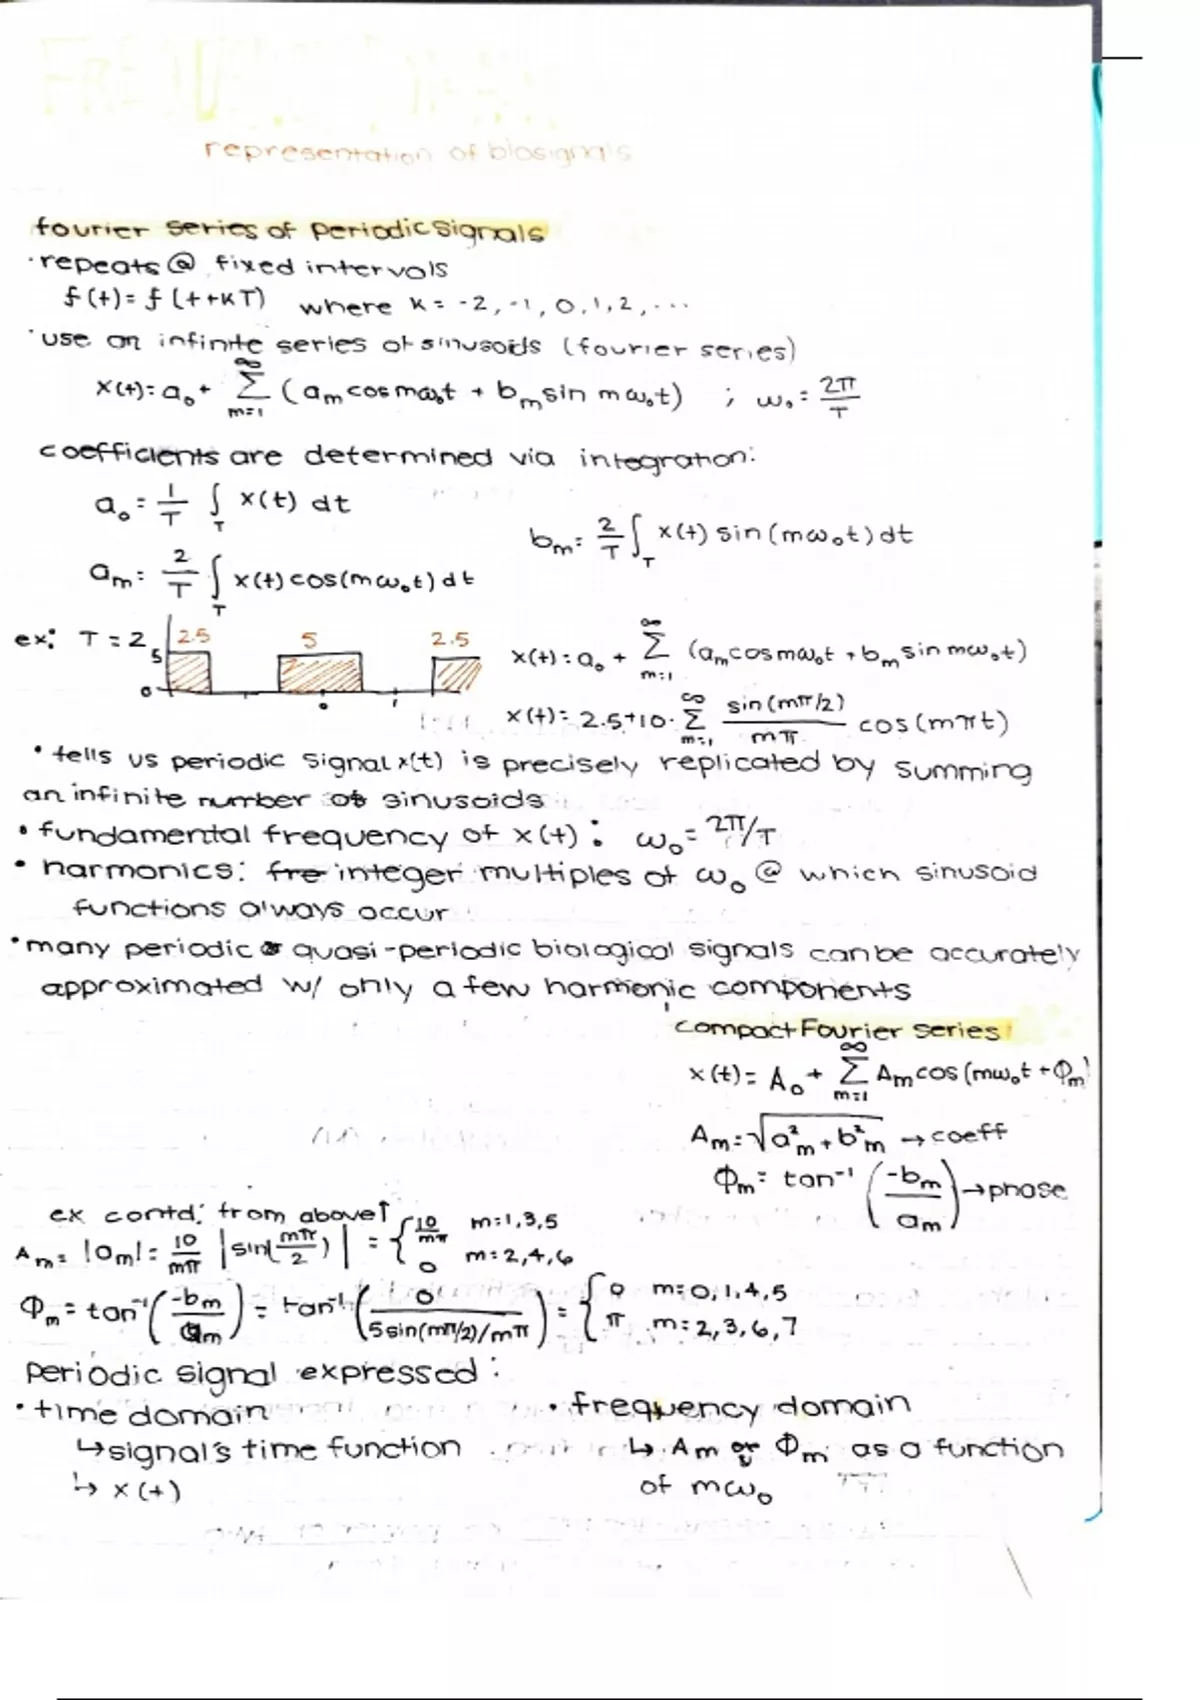 representation of biosignals
fourier series of periodic signals
· repeats @ fixed intervals
f(t) = f(t+kT) where k = -2, -1, 0, 1, 2, ...
· use an infinite series of sinusoids (fourier series)
x(t) = a₀ + ∑_{m=1}^{∞} (aₘ cos mω₀t + bₘ sin mω₀t) ; ω₀ = 2π/T
coefficients are determined via integration:
a₀ = 1/T ∫_T x(t) dt
bₘ = 2/T ∫_T x(t) sin(mω₀t) dt
aₘ = 2/T ∫_T x(t) cos(mω₀t) dt
ex: T = 2 5 0 2.5 5 2.5 0 1
x(t) = a₀ + ∑_{m=1}^{∞} (aₘ cos mω₀t + bₘ sin mω₀t)
x(t) = 2.5 + 10 · ∑_{m=1}^{∞} sin(mπ/2)/mπ cos(mπt)
· tells us periodic signal x(t) is precisely replicated by summing
an infinite number of sinusoids
· fundamental frequency of x(t): ω₀ = 2π/T
· harmonics: fre integer multiples of ω₀ @ which sinusoid
functions always occur
· many periodic or quasi-periodic biological signals can be accurately
approximated w/ only a few harmonic components
compact Fourier series
x(t) = A₀ + ∑_{m=1}^{∞} Aₘ cos(mω₀t + Φₘ)
Aₘ = √(a²ₘ + b²ₘ) → coeff
Φₘ = tan⁻¹(-bₘ/aₘ) → phase
ex contd: from above↑
Aₘ = |aₘ| = 10/mπ |sin(mπ/2)| = { 10/mπ m=1,3,5
0 m=2,4,6
Φₘ = tan⁻¹(-bₘ/aₘ) = tan⁻¹(0/(5sin(mπ/2)/mπ)) = { 0 m=0,1,4,5
π m=2,3,6,7
periodic signal expressed:
· time domain
↳ signal's time function
↳ x(t)
· frequency domain
↳ Aₘ or Φₘ as a function
of mω₀